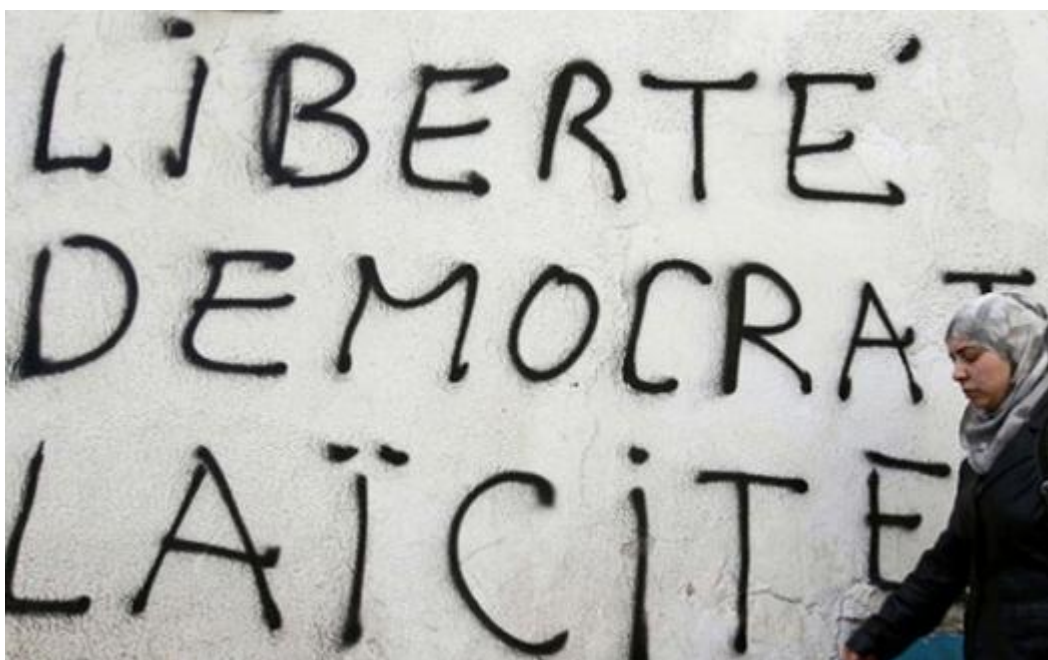 LiBERTÉ
DEMOCRAT
LAÏCiTE